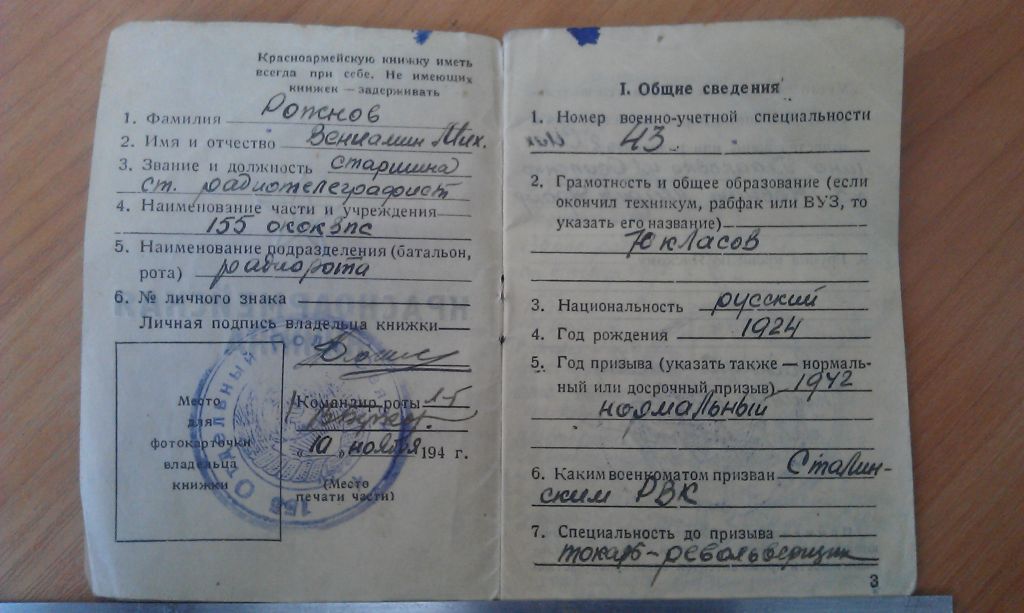 Красноармейскую книжку иметь
всегда при себе. Не имеющих
книжек — задерживать
1. Фамилия Рожнов
2. Имя и отчество Вениамин Мих.
3. Звание и должность старшина
ст. радиотелеграфист
4. Наименование части и учреждения
155
5. Наименование подразделения (батальон,
рота) радиорота
6. № личного знака
Личная подпись владельца книжки
Место
для
фотокарточки
владельца
книжки
Командир роты 15
„10" ноября 194 г.
(Место
печати части)
155 Отдельный
I. Общие сведения
1. Номер военно-учетной специальности
43
2. Грамотность и общее образование (если
окончил техникум, рабфак или ВУЗ, то
указать его название)
класов
3. Национальность русский
4. Год рождения 1924
5. Год призыва (указать также — нормаль-
ный или досрочный призыв) 1942
нормальный
6. Каким военкоматом призван Сталин-
ским РВК
7. Специальность до призыва
токарь-револьверщик
3